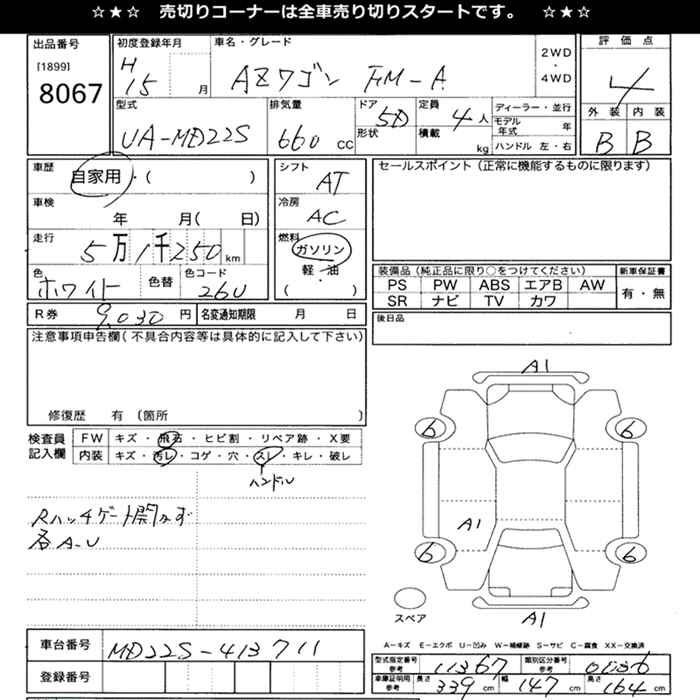 ☆★☆ 売切りコーナーは全車売り切りスタートです。 ☆★☆
出品番号 初度登録年月 車名・グレード 評価点
[1899] H15 月 AZワゴン FM-A 2WD・4WD 4
8067
型式 排気量 ドア 5D 定員 4人 ディーラー・並行 外装 内装
UA-MD22S 660 CC 形状 積載 kg モデル年式 年 B B
ハンドル 左・右
車歴 自家用・( ) シフト AT セールスポイント(正常に機能するものに限ります)
車検 年 月( 日) 冷房 AC
走行 5万1千250km 燃料 ガソリン
軽・油
( )
色 ホワイト 色替 色コード 26U
装備品(純正品に限り○をつけてください) 新車保証書
PS PW ABS エアB AW 有・無
SR ナビ TV カワ
R券 9,030 円 名変通知期限 月 日 後日品
注意事項申告欄(不具合内容等は具体的に記入して下さい)
修復歴 有 (箇所 )
検査員記入欄 FW キズ・飛石・ヒビ割・リペア跡・X要
内装 キズ・汚レ・コゲ・穴・スレ・キレ・破レ
ハンドル
Rハッチゲート開かず
各A-U
A1
6 6
A1
6 6
スペア A1
A-キズ E-エクボ U-凹み W-補修跡 S-サビ C-腐食 XX-交換済
車台番号 MD22S-413711
登録番号
型式指定番号 参考 11367 類別区分番号 参考 0036
車庫証明用 参考 長さ 339 cm 幅 147 cm 高さ 164 cm